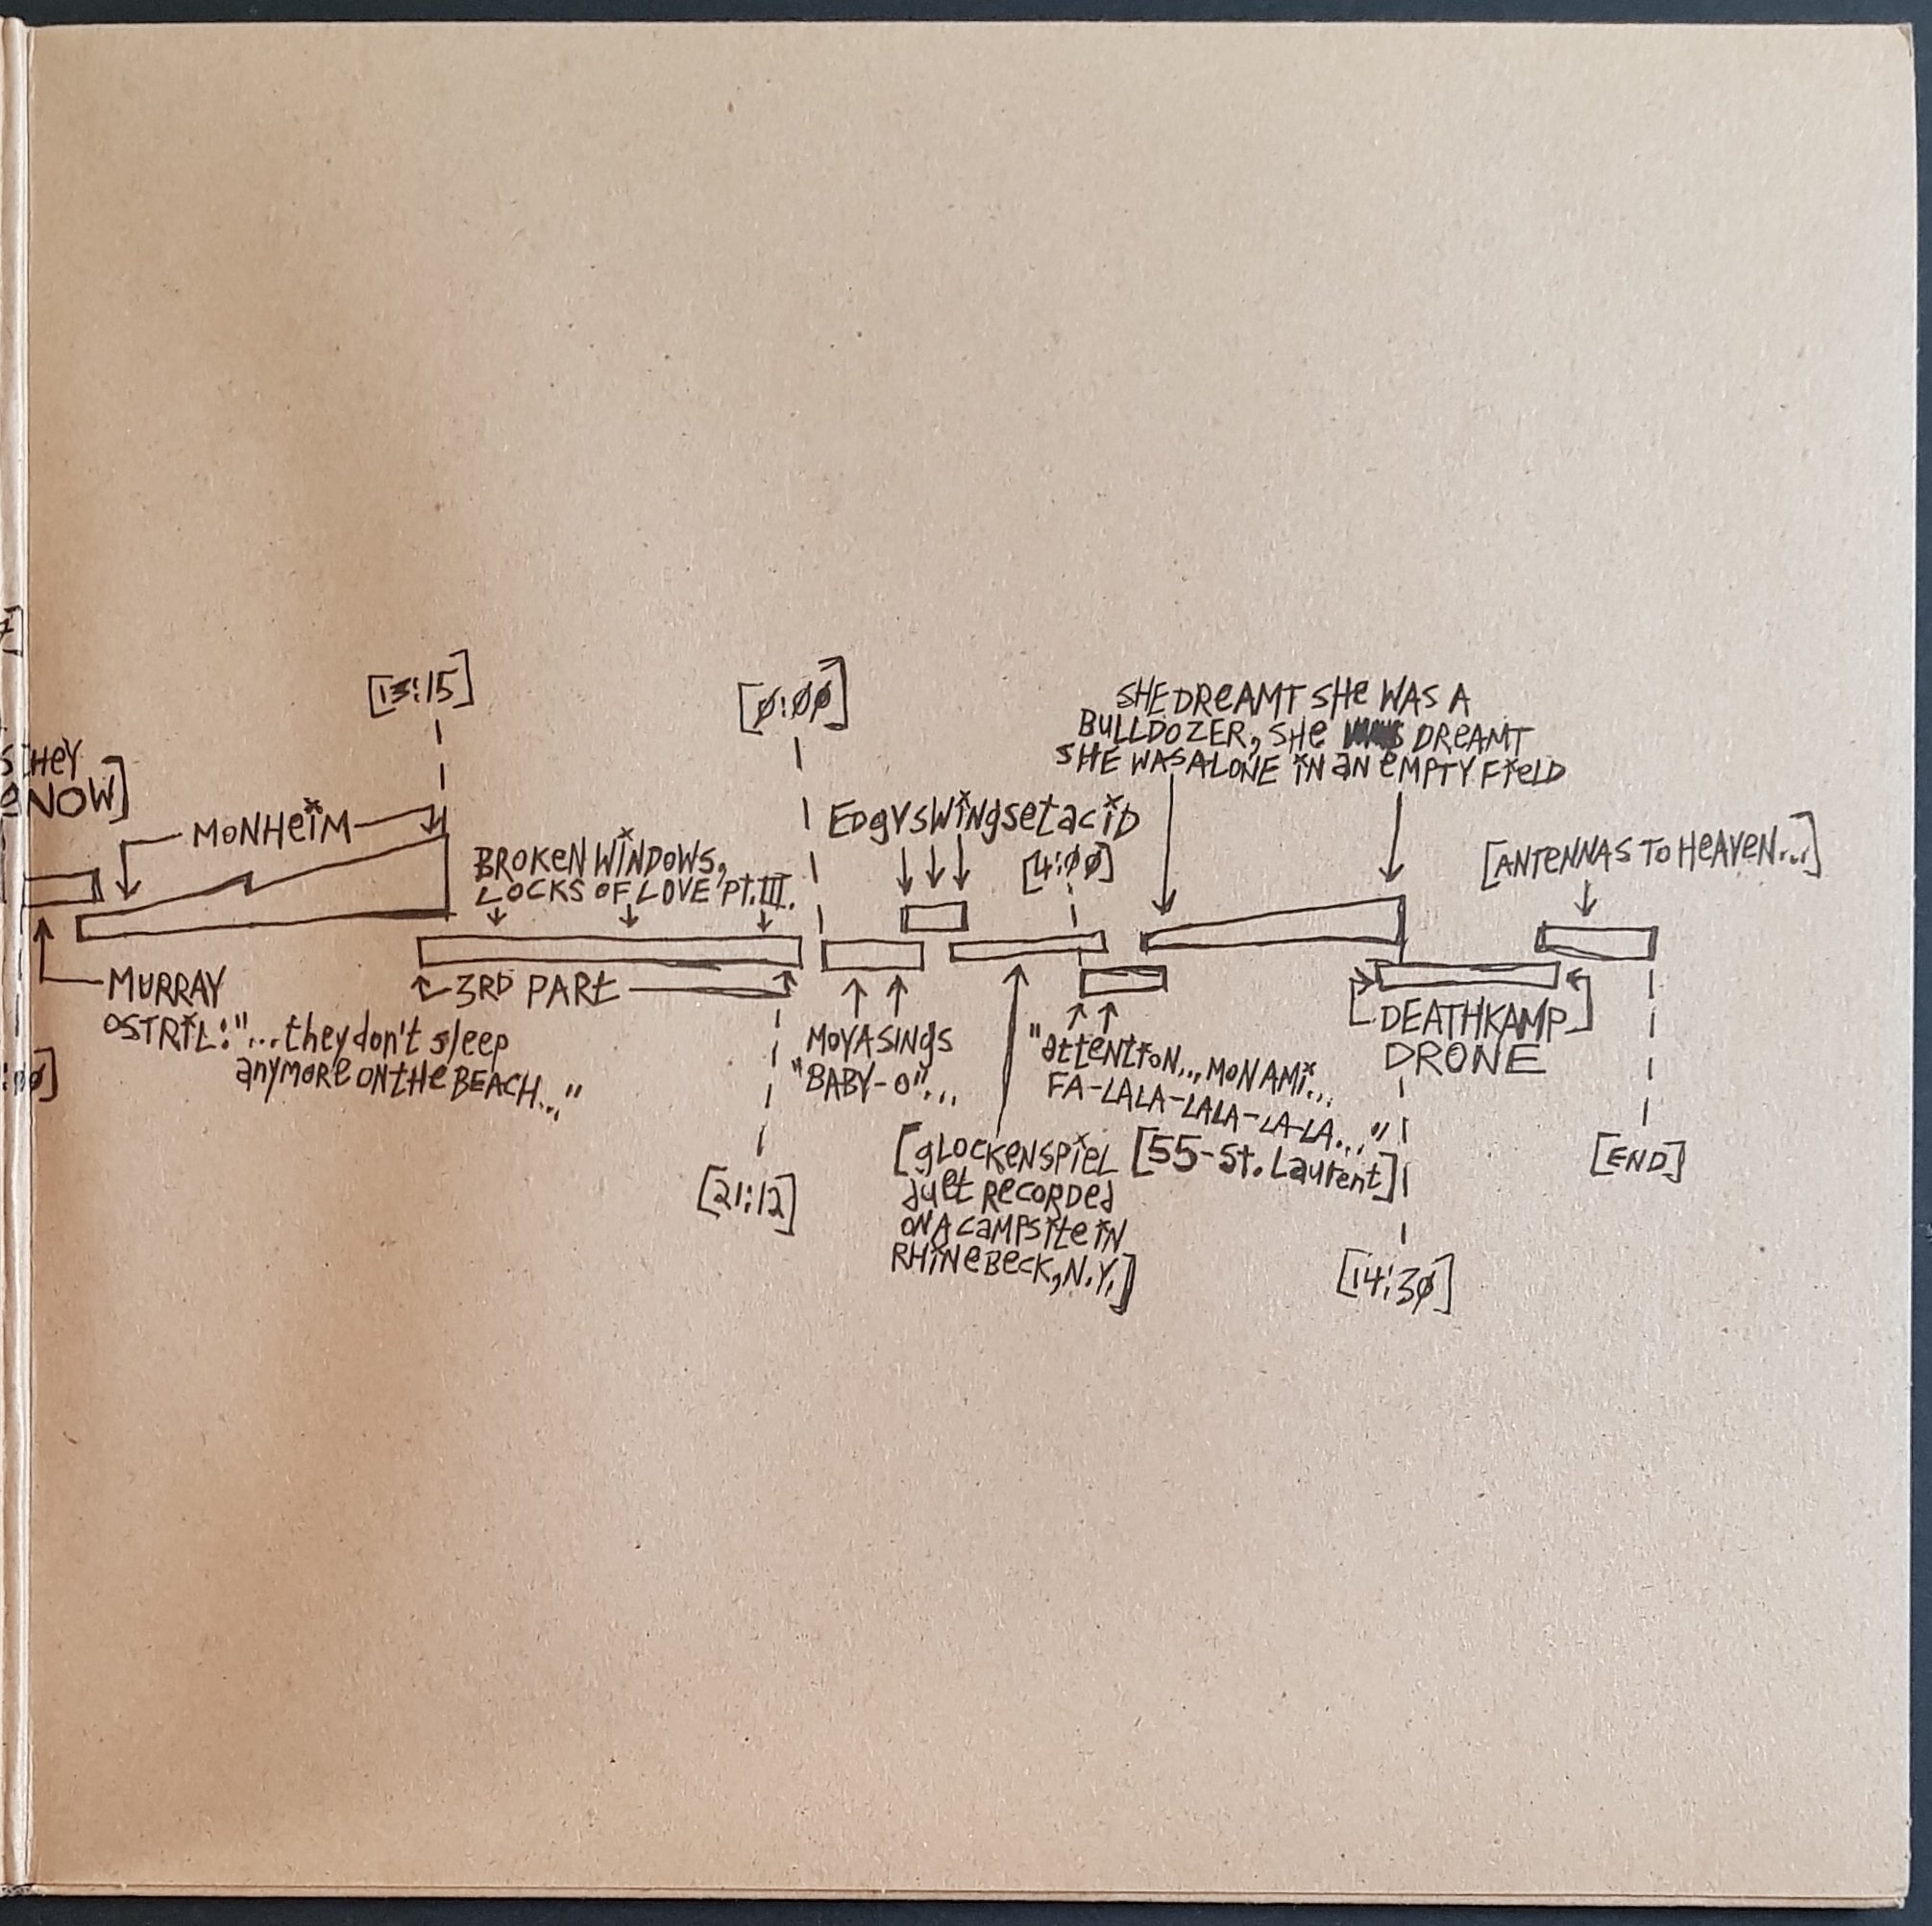 [13:15]
[0:00]
SHE DREAMT SHE WAS A
BULLDOZER, SHE DREAMT
SHE WAS ALONE IN AN EMPTY FIELD
HEY
NOW]
MONHEIM
EDGYSWINGSETACID
[4:00]
BROKEN WINDOWS,
LOCKS OF LOVE PT.III.
[ANTENNAS TO HEAVEN...]
MURRAY
OSTRIL: "...they don't sleep
anymore ON the BEACH..."
3RD PART
MOYA SINGS
"BABY-O"...
"attention... MON AMI...
FA-LALA-LALA-LA-LA..."
[55-St. Laurent]
DEATHKAMP
DRONE
[GLOCKENSPIEL
duet RECORDED
ON A CAMPSITE IN
RHINEBECK, N.Y.]
[21:12]
[14:30]
[END]